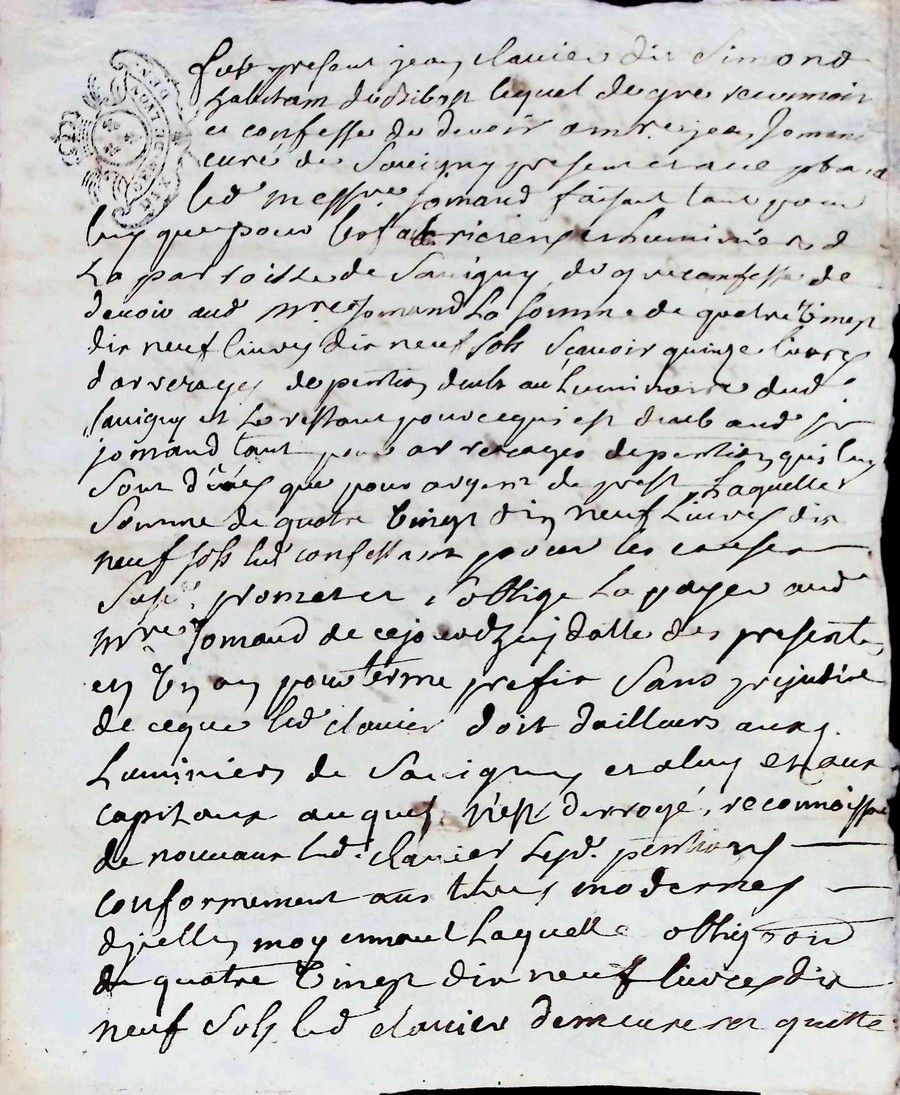 fust present jean clavier dit Simond
habitant de Ribost lequel de gre reconnoit
et confesse de devoir a mre jean Jomand
curé de Savigny present et acce
led messre Jomand faisant tant pour
luy que pour les fabriciens et luminiers d
La parroisse de Savigny, de gre confesse de
devoir aud mre Jomand La somme de quatre vingt
dix neuf livres dix neuf sols Scavoir quinze livres
d'arrerages de pention deubs au Luminaire dud
Savigny et Le restant pour ce qui est deub aud sr
jomand tant pour arrerages de pention qui luy
sont dûes que pour argent de prest Laquelle
Somme de quatre vingt dix neuf Livres dix
neuf sols led confessant pour les causes
Susd. promet et s'oblige La payer aud
mre Jomand de cejourdhuy datte des presentes
en Un an pour terme prefix Sans prejudice
de ce que led clavier doit d'ailleurs aux
Luminiers de Savigny et a luy et aux
capitaux auquel n'est derrogé, reconnoissant
de nouveaux led. clavier Lesd. pentions
conformement aux titres modernes
d'jcelles moyennant Laquelle obligaon
de quatre vingt dix neuf livres dix
neuf sols led clavier demeurera quitte